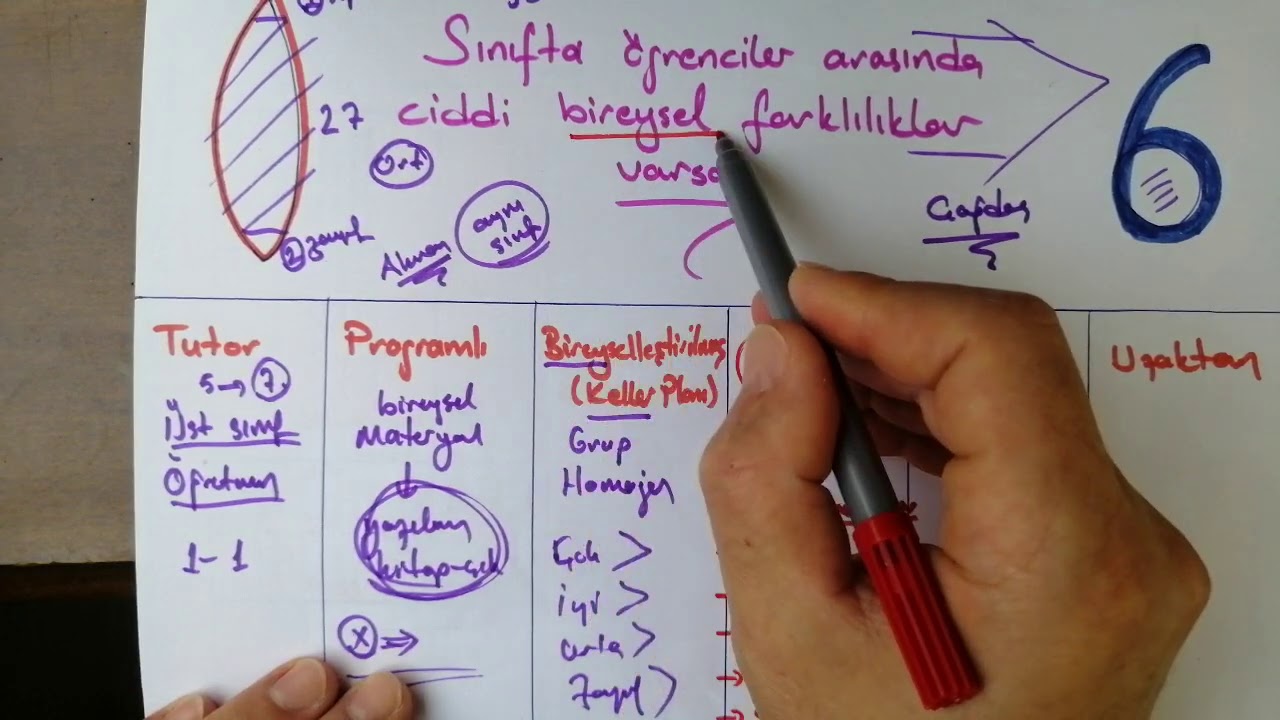 Sınıfta öğrenciler arasında
27 ciddi bireysel farklılıklar
varsa
Ort
aynı
sınıf
Alman
② zayıf
Çağdaş
6
Tutor
5 → 7.
Üst sınıf
Öğretmen
1-1
Programlı
bireysel
Materyal
yazılım
kitap-çık
X ⇒
Bireyselleştirilmiş
(Keller Planı)
Grup
Homojen
Çok >
iyi >
orta >
Zayıf >
Uzaktan